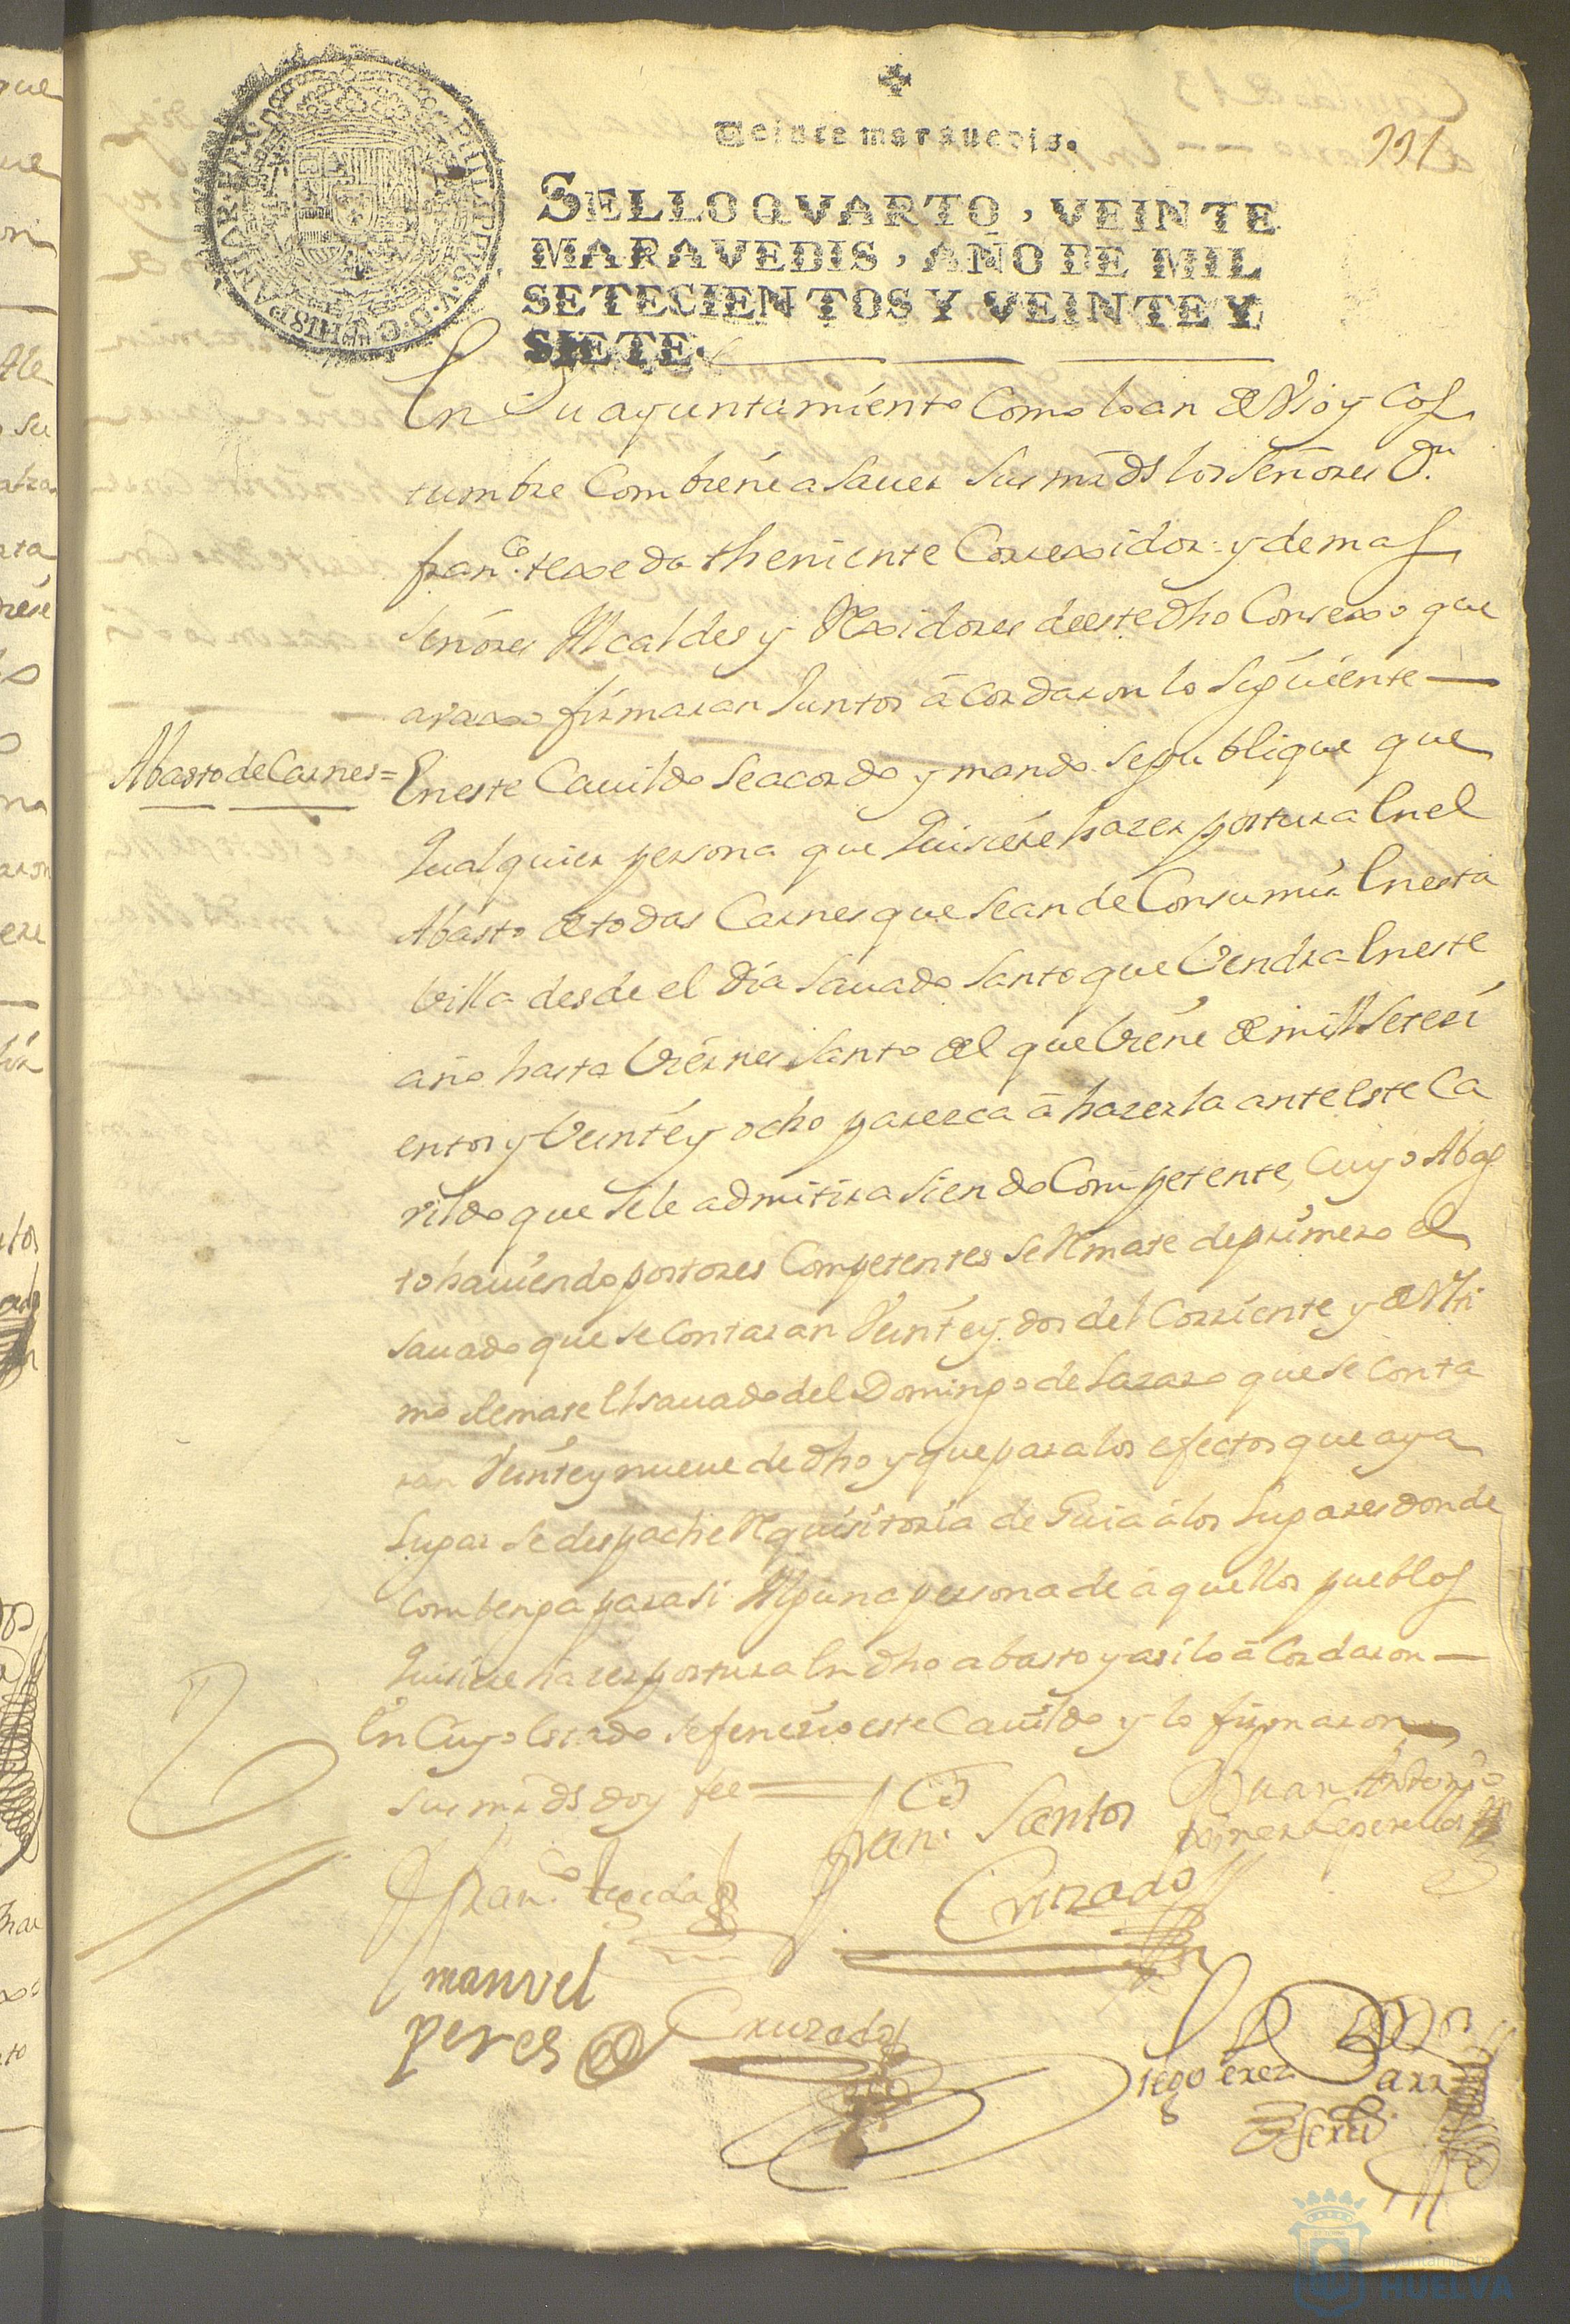 Veinte maravedis.
331
SELLO QVARTO, VEINTE
MARAVEDIS, AÑO DE MIL
SETECIENTOS Y VEINTE Y
SIETE.
PHILIPPUS·V·D·G· HISPANIAR·REX·
En Su ayuntamiento Como lo an de Vso y Cos
tumbre Combiene a Sauer Sus mrds los Señores Dn
franco texeda theniente Correxidor y demas
Señores Alcaldes y Rexidores de este dho Consexo que
avaxo firmaran Juntos acordaron lo Siguiente
Abasto de Carnes = En este Cauildo Se acordo y mando se publique que
qualquier persona que quisiere hazer postura En el
Abasto de todas Carnes que Sean de Consumir En esta
Villa desde el dia Sauado Santo que Vendra En este
año hasta Viernes Santo del que Viene de mill Seteci
entos y Veinte y ocho parezca a hazerla ante Este Ca
vildo que Se le admitira Siendo Competente, Cuyo Abas
to hauiendo postores Competentes Se Remate de primero el
Sauado que Se Contaran Veinte y dos del Corriente y de Vlti
mo Remate El Sauado del Domingo de Lazaro que Se Conta
ran Veinte y nueue de dho y que para los efectos que aya
Lugar Se despache Requisitoria de Guia a los Lugares donde
Combenga para si Alguna persona de aquellos pueblos
quisiere hazer postura En dho abasto y asi lo acordaron
En Cuyo Estado Se fenecio este Cauildo y lo firmaron
Sus mrds doy fee
Juan Antonio
Franco Santos
Cruzado
Franco tegeda
manuel
peres
Cruzado
Diego Perez
HUELVA